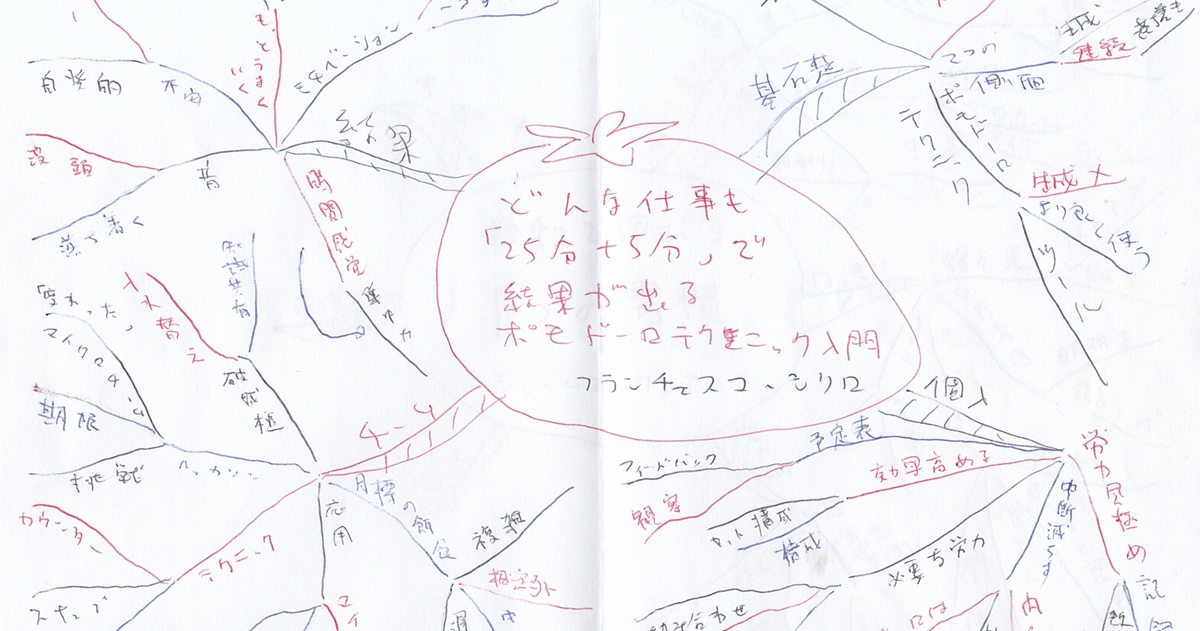 どんな仕事も
「25分+5分」で
結果が出る
ポモドーロテクニック入門
フランチェスコ・シリロ
基礎
2つの
側面
生成
表書き
ポモドーロ
テクニック
生成×
より良く使う
ツール
結果
モチベーション
もっとうまく
いく
不安
自発的
没頭
落ち着く
昔
時間感覚
集中力
チーム
知識共有
入れ替え
「変わった」
マイクロチーム
期限
挑戦
カウンター
テクニック
スキップ
応用
目標の
複雑
想定外
個人
予定表
フィードバック
観察
効率高める
セット構成
構成
必要な労力
組み合わせ
中断減らす
労力見極め
内